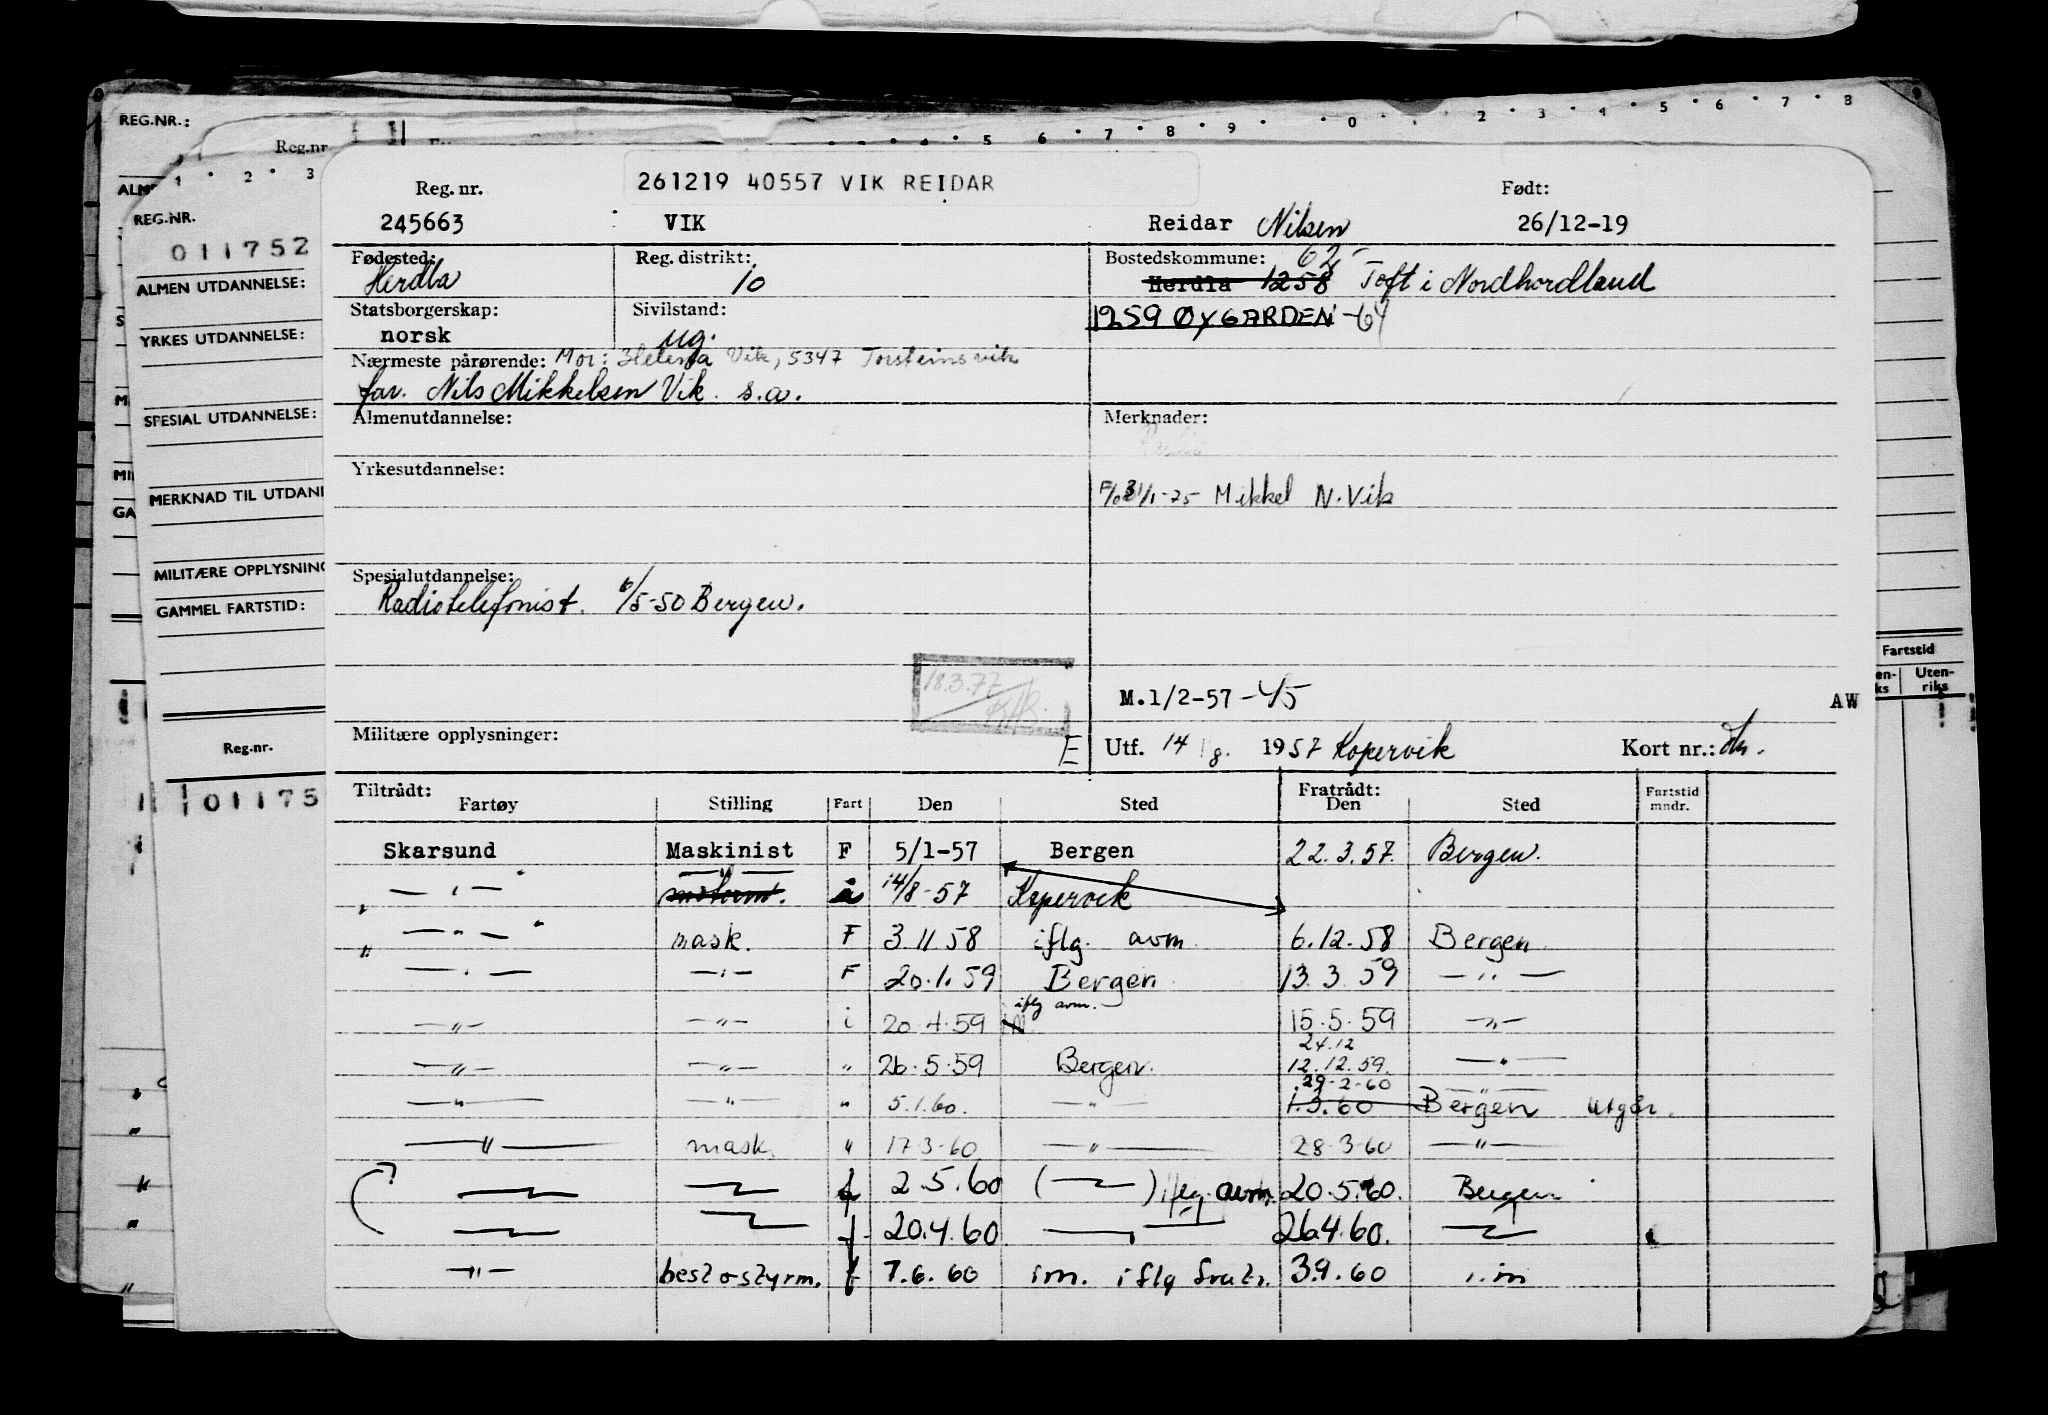 REG.NR.:
Reg.nr
5 6 7 8 9 0 2 3 4 5 6 7 8
1 2 3
ALM
REG.NR.
011752
ALMEN UTDANNELSE:
YRKES UTDANNELSE:
SPESIAL UTDANNELSE:
MERKNAD TIL UTDANN
MILITÆRE OPPLYSNING
GAMMEL FARTSTID:
Reg.nr.
01175
Fartstid
Uten-
riks
261219 40557 VIK REIDAR
Reg. nr. Født:
245663 VIK Reidar Nilsen 26/12-19
Fødested: Reg. distrikt: Bostedskommune: 62-
Herdla 10 Herdla 1258 Toft i Nordhordland
Statsborgerskap: Sivilstand: 1259 ØYGARDEN -64
norsk ug.
Nærmeste pårørende: Mor: Helena Vik, 5347 Torsteinsvik
far. Nils Mikkelsen Vik. s.a.
Almenutdannelse: Merknader:
Yrkesutdannelse:
F/o 31/1-25 Mikkel N. Vik
Spesialutdannelse:
Radiotelefonist. 6/5-50 Bergen.
18.3.77
M.1/2-57 -45 AW
Militære opplysninger: E Utf. 14/8. 1957 Kopervik Kort nr.:
Tiltrådt: Fratrådt: Fartstid
Fartøy Stilling Fart Den Sted Den Sted mndr.
Skarsund Maskinist F 5/1-57 Bergen 22.3.57. Bergen.
— " — — " — 14/8-57 Kopervik
— " — mask. F 3 11 58 iflg. avm. 6.12.58 Bergen
— " — — " — F 20.1.59 Bergen 13.3.59 — " —
iflg avm.
— " — — " — i 20.4.59 15.5.59 — " —
24.12
— " — — " — " 26.5.59 Bergen. 12.12.59. — " —
29-2-60 — " —
— " — — " — " 5.1.60. — " — 1.3.60 Bergen utgår.
— " — mask. " 17-3-60 — " — 28-3-60 — " —
— " — — " — f 2.5.60 (— " —) iflg. avm. 20.5.60. Bergen
— " — — " — f 20.4.60 — " — 26.4.60. — " —
— " — best o styrm. f 7.6.60 im. iflg fratr. 3.9.60 im